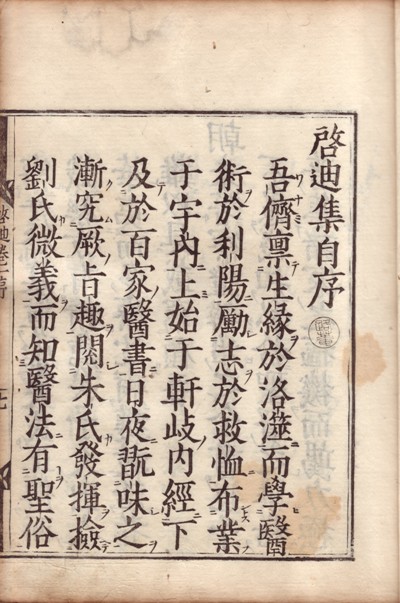 啓迪集自序
吾儕禀生緣於洛澨而學醫
術於利陽勵志於救恤布業
于宇內上始于軒岐內經下
及於百家醫書日夜翫味之
漸究厥旨趣閱朱氏發揮撿
劉氏微義而知醫法有聖俗